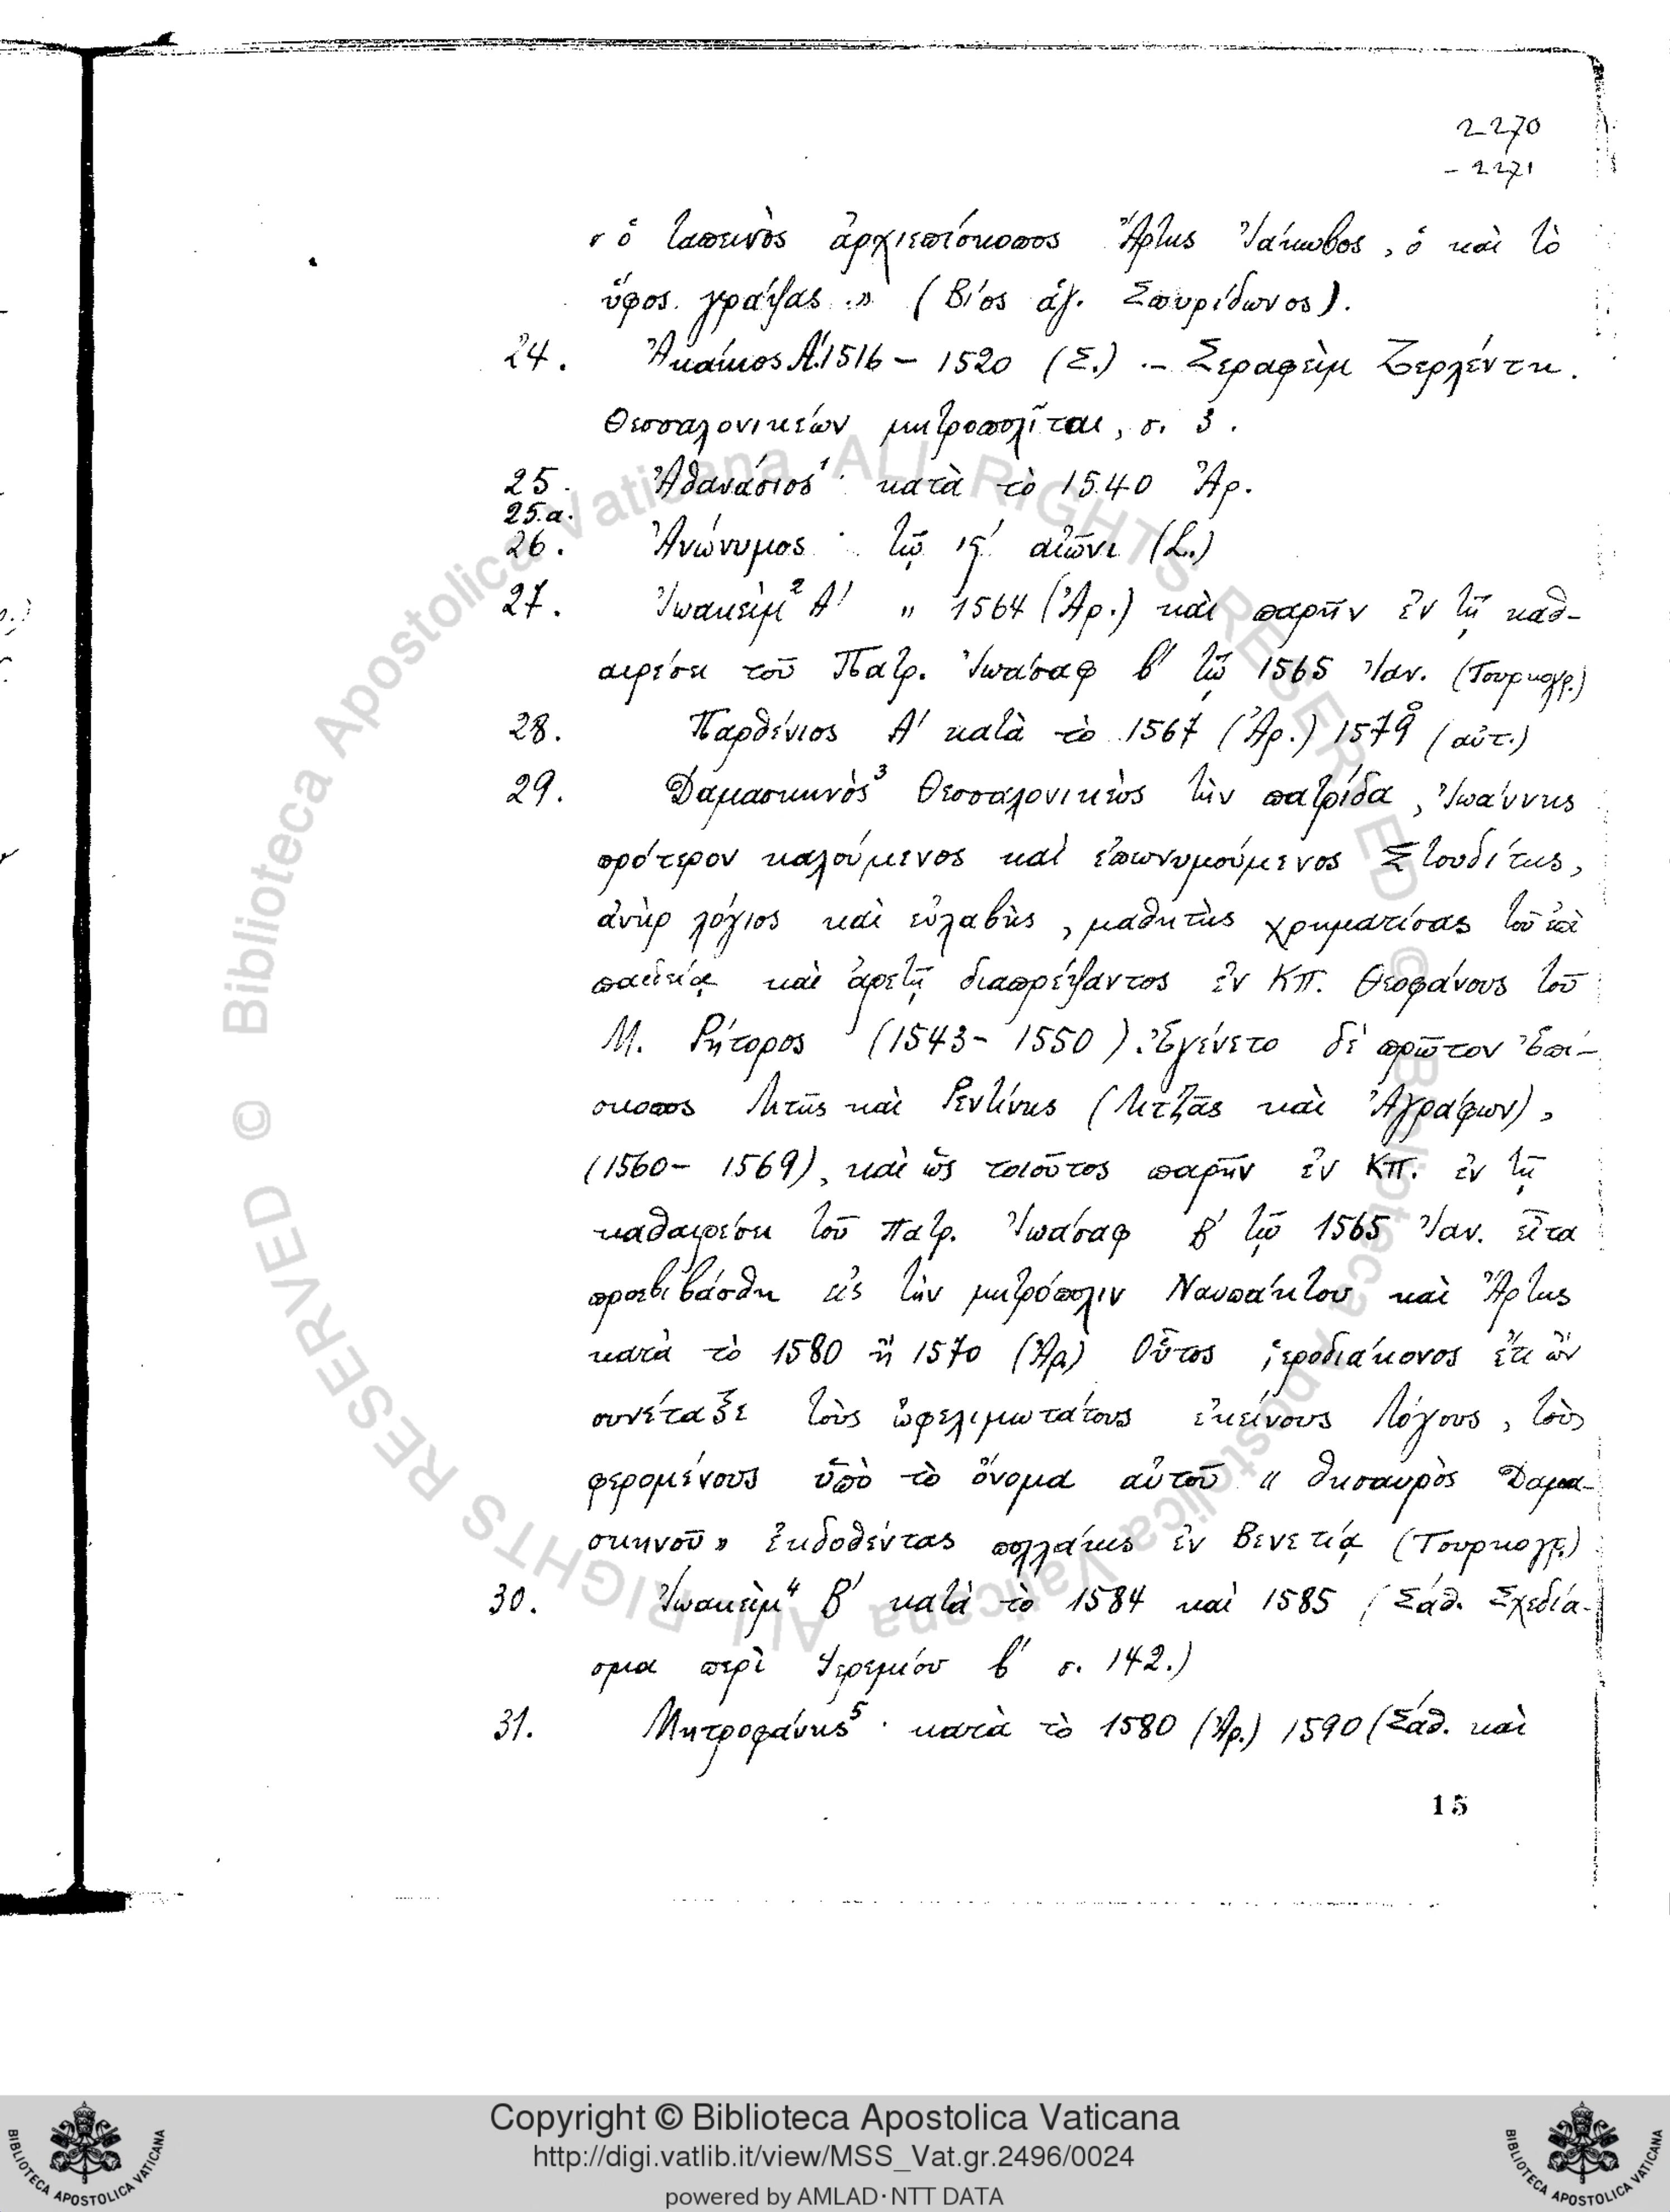 2270
- 2271
« ὁ ταπεινὸς ἀρχιεπίσκοπος Ἄρτης Ἰάκωβος, ὁ καὶ τὸ
ὕφος γράψας.» (Βίος ἁγ. Σπυρίδωνος).
24. Ἀκάκιος Α'. 1516 – 1520 (Σ.) .– Σεραφεὶμ Ζερλέντη.
Θεσσαλονικέων μητροπολῖται, σ. 3.
25. Ἀθανάσιος¹· κατὰ τὸ 1540 Ἀρ.
25.α.
26. Ἀνώνυμος · τῷ ιϛ' αἰῶνι (L.)
27. Ἰωακεὶμ² Α' „ 1564 (Ἀρ.) καὶ παρῆν ἐν τῇ καθ-
αιρέσει τοῦ Πατρ. Ἰωάσαφ β' τῷ 1565 Ἰαν. (Τουρκογρ.)
28. Παρθένιος Α' κατὰ τὸ 1567 (Ἀρ.) 1579 (αὐτ.)
29. Δαμασκηνὸς³ Θεσσαλονικεὺς τὴν πατρίδα, Ἰωάννης
πρότερον καλούμενος καὶ ἐπωνυμούμενος Στουδίτης,
ἀνὴρ λόγιος καὶ εὐλαβὴς, μαθητὴς χρηματίσας τοῦ ἐπὶ
παιδείᾳ καὶ ἀρετῇ διαπρέψαντος ἐν ΚΠ. Θεοφάνους τοῦ
Μ. Ρήτορος (1543 – 1550). Ἐγένετο δὲ πρῶτον Ἐπί-
σκοπος Λιτῆς καὶ Ρεντίνης (Λιτζᾶς καὶ Ἀγράφων),
(1560 – 1569), καὶ ὡς τοιοῦτος παρῆν ἐν ΚΠ. ἐν τῇ
καθαιρέσει τοῦ Πατρ. Ἰωάσαφ Β' τῷ 1565 Ἰαν. εἶτα
προεβιβάσθη εἰς τὴν μητρόπολιν Ναυπάκτου καὶ Ἄρτης
κατὰ τὸ 1580 ἢ 1570 (Ἀρ.) Οὗτος ἱεροδιάκονος ἔτι ὢν
συνέταξε τοὺς ὠφελιμωτάτους ἐκείνους λόγους, τοὺς
φερομένους ὑπὸ τὸ ὄνομα αὐτοῦ « θησαυρὸς Δαμα-
σκηνοῦ» ἐκδοθέντας πολλάκις ἐν Βενετίᾳ (Τουρκογρ.)
30. Ἰωακεὶμ⁴ Β' κατὰ τὸ 1584 καὶ 1585 (Σάθ. Σχεδία-
σμα περὶ Ἱερεμίου β' σ. 142.)
31. Μητροφάνης⁵ · κατὰ τὸ 1580 (Ἀρ.) 1590 (Σάθ. καὶ
15
© Biblioteca Apostolica Vaticana ALL RIGHTS RESERVED © Biblioteca Apostolica Vaticana ALL RIGHTS RESERVED
Copyright © Biblioteca Apostolica Vaticana
http://digi.vatlib.it/view/MSS_Vat.gr.2496/0024
powered by AMLAD·NTT DATA
BIBLIOTECA APOSTOLICA VATICANA
BIBLIOTECA APOSTOLICA VATICANA